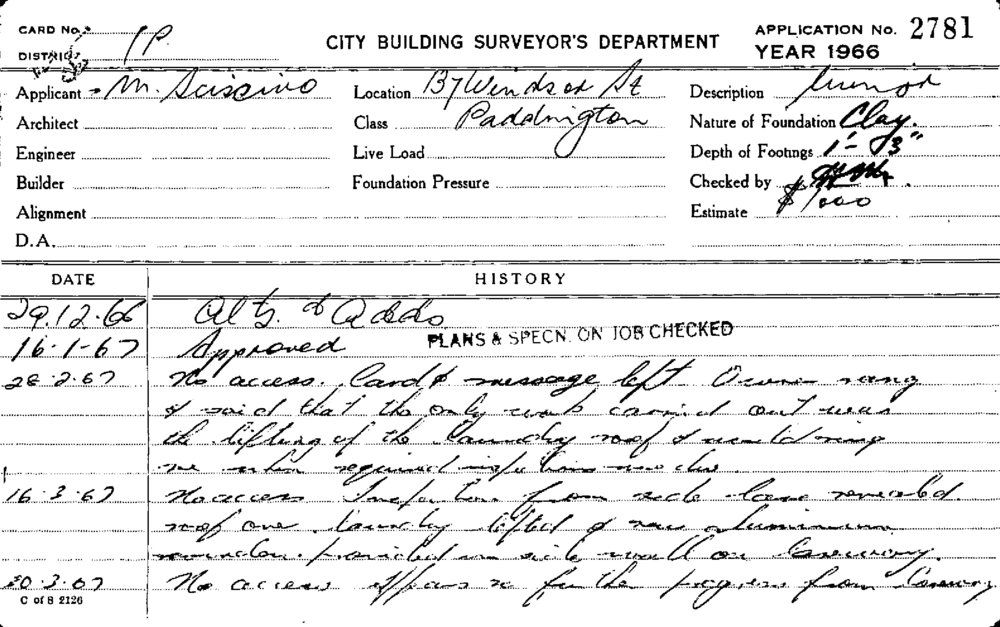 CARD No.
DISTRICT 1P
CITY BUILDING SURVEYOR'S DEPARTMENT
APPLICATION No. 2781
YEAR 1966
Applicant M. Sciscino Location 137 Windsor St Description Minor
Architect Class Paddington Nature of Foundation Clay.
Engineer Live Load Depth of Footings 1'-3"
Builder Foundation Pressure Checked by
Alignment Estimate $1000
D.A.
DATE HISTORY
29.12.66 Alts. & Adds
16-1-67 Approved PLANS & SPECN. ON JOB CHECKED
28.2.67 No access. Card & message left. Owner rang
& said that the only work carried out was
the lifting of the laundry roof & would ring
me when required inspections were due.
16.3.67 No access Inspection from side lane revealed
roof over laundry lifted & new aluminium
window provided in side wall on
20.3.67 No access appears no further progress from
C of S 2126